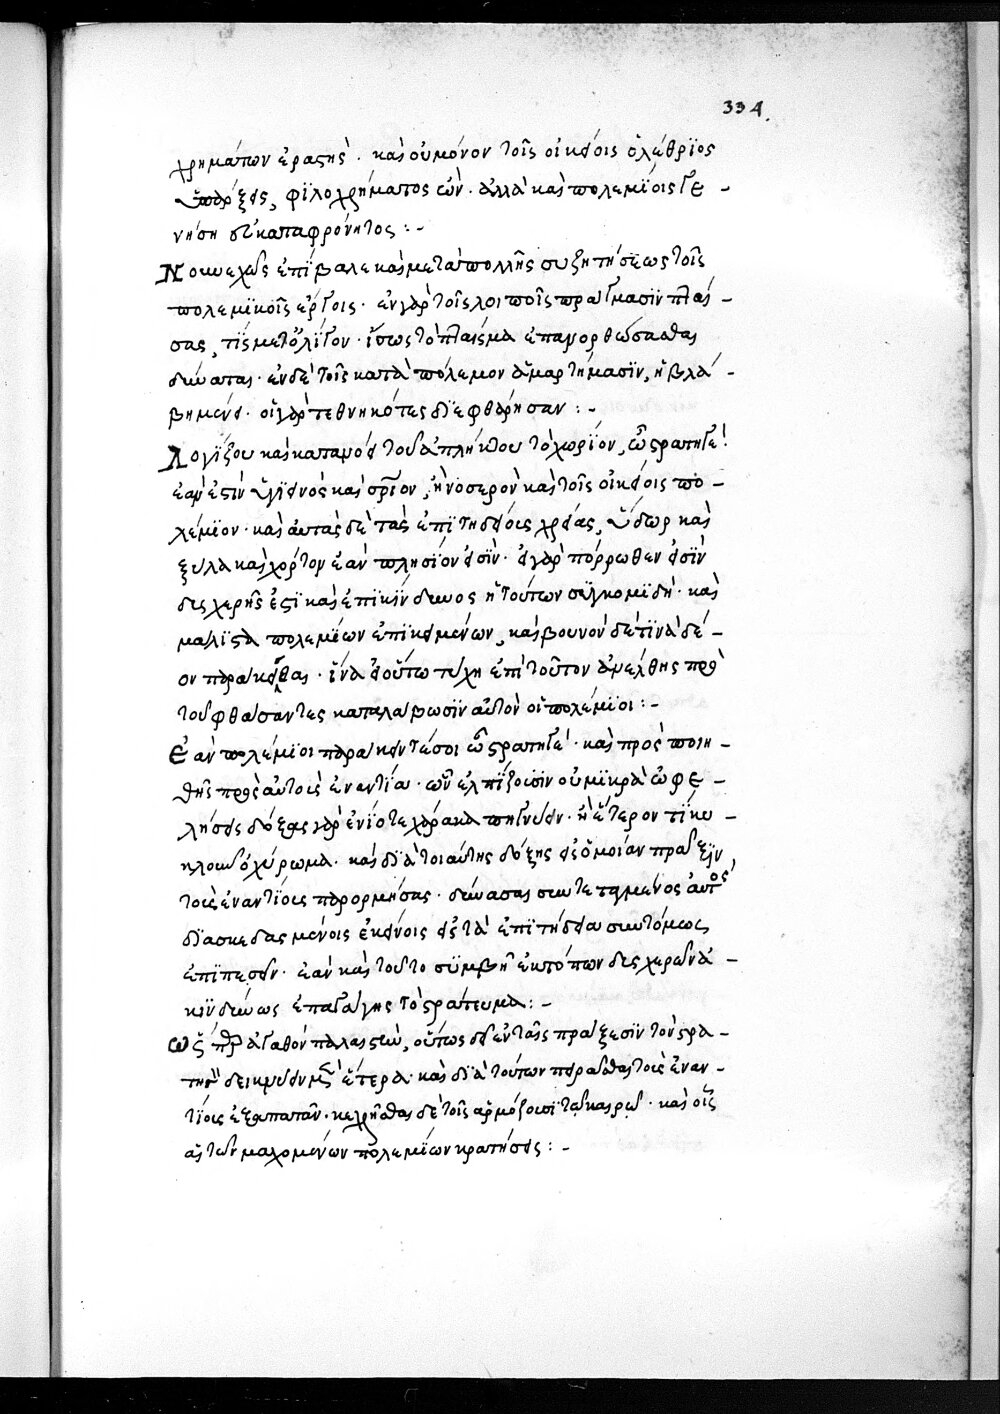 334
χρημάτων ἐραστὴς. καὶ οὐ μόνον τοῖς οἰκείοις ὀλέθριος
ὑπάρξεις, φιλοχρήματος ὢν. ἀλλὰ καὶ πολεμίοις γε –
νήση εὐκαταφρόνητος : –
Νουνεχῶς ἐπίβαλε καὶ μετὰ πολλῆς συζητήσεως τοῖς
πολεμικοῖς ἔργοις. ἐν γὰρ τοῖς λοιποῖς πράγμασιν πταί –
σας, τίς μετ' ὀλίγον. ἴσως τὸ πταῖσμα ἐπανορθώσασθαι
δύναται. ἐν δὲ τοῖς κατὰ πόλεμον ἁμαρτήμασιν, ἡ βλά –
βη μένει. οἱ γὰρ τεθνηκότες διεφθάρησαν : –
Λογίζου καὶ καταμόσ τοῦ ἀπλήκτου τὸ χωρίον, ὦ στρατηγέ!
ἐὰν ἐστὶν ὑγιεινὸς καὶ σῶον, ἢ νοσερὸν καὶ τοῖς οἰκείοις πο –
λέμιον. καὶ αὐτὰς δὲ τὰς ἐπιτηδείοις χρείας, ὕδωρ καὶ
ξύλα καὶ χόρτον ἐὰν πλησίον εἰσὶν. εἰ γὰρ πόρρωθεν εἰσὶν
δυσχερής ἐστι καὶ ἐπικίνδυνος ἡ τούτων συγκομιδὴ. καὶ
μάλιστα πολεμίων ἐπικειμένων, καὶ βουνὸν δέ τινα δέ –
ον παρακεῖσθαι. ἵνα εἰ οὕτω τύχη ἐπὶ τοῦτον ἀνέλθης πρὸ
τοῦ φθάσαντες καταλάβωσιν αὐτὸν οἱ πολέμιοι : –
Ἐὰν πολέμιοι παράκεινταί σοι ὦ στρατηγέ. καὶ πρὸς ποιη –
θῆς πρὸς αὐτοὺς ἐναντία. ὧν ἐλπίζουσιν οὐ μικρὰ ὠφε –
λήσεις δόξας γὰρ ἐνίοτε χάρακα πηγνύειν. ἢ ἕτερον τι κυ –
κλοῦν ὀχύρωμα. καὶ διὰ τοιαύτης δόξης εἰς ὁμοίαν πρᾶξιν,
τοὺς ἐναντίους παρορμήσας. δυνάσαι συντεταγμένος αὐτὸς
διασκεδασμένοις ἐκείνοις εἰς τὰ ἐπιτήδεια συντόμως
ἐπιπεσεῖν. ἐὰν καὶ τοῦτο συμβῆ ἐκ τόπων δυσχερῶν ἀ –
κινδύνως ἐπαγάγης τὸ στράτευμα : –
Ὥσπερ ἀγαθὸν παλαιστὴν, οὕτως δεῖ ἐν ταῖς πράξεσιν τὸν στρα –
τηγὸν δεικνύειν μὲν ἕτερα. καὶ διὰ τούτων πειρᾶσθαι τοὺς ἐναν –
τίους ἐξαπατᾶν. κεχρῆσθαι δὲ τοῖς ἁρμόζουσι τῷ καιρῷ. καὶ οἷς
ἂν τῶν μαχομένων πολεμίων κρατήσεις : –